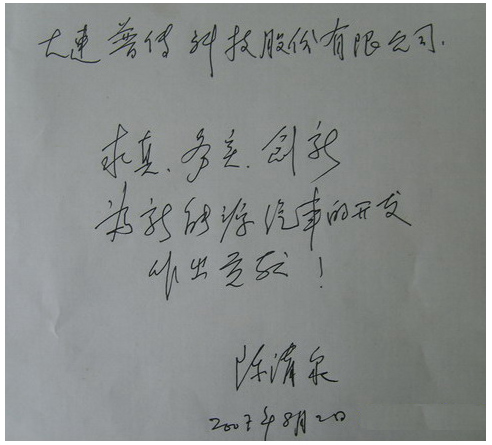 大连普传科技股份有限公司.
求真、务实、创新
为新能源汽车的开发
作出贡献！
陈清泉
2007年8月20